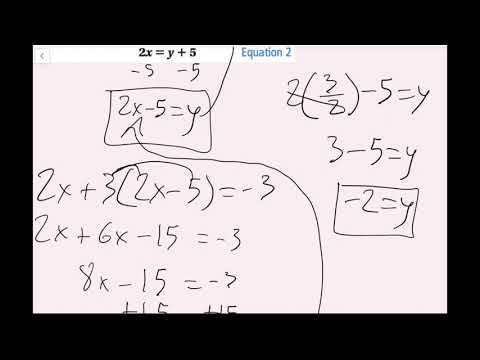 2x = y + 5 Equation 2
-5 -5
2x-5=y
2x+3(2x-5)=-3
2x+6x-15=-3
8x-15=-3
+15 +15
2(3/2)-5=y
3-5=y
-2=y